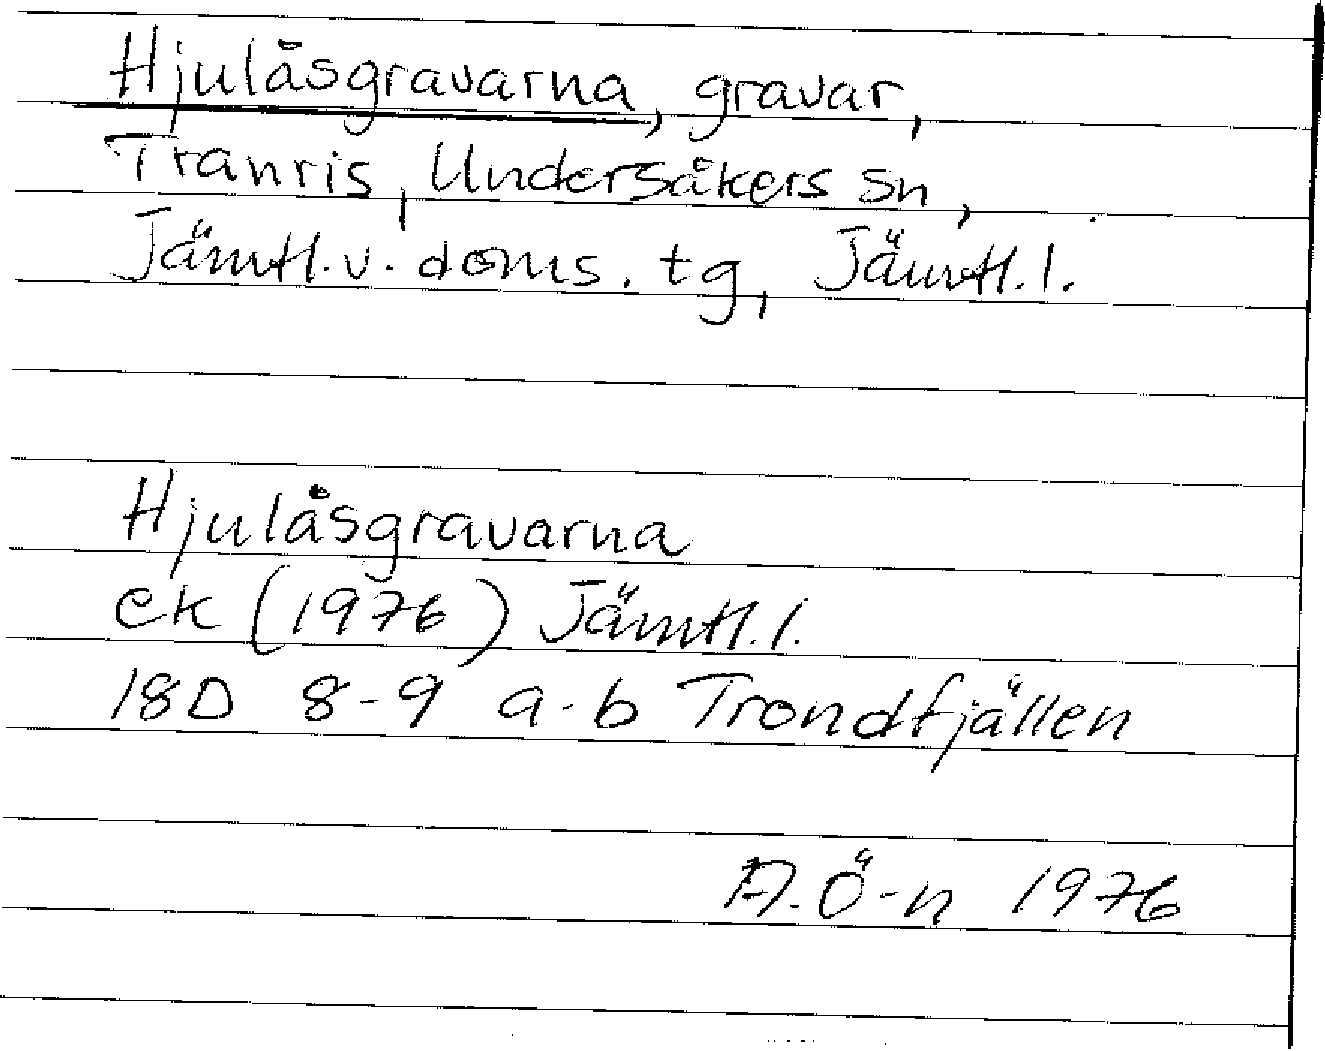 Hjulåsgravarna, gravar,
Tranris, Undersåkers sn,
Jämtl. v. doms. tg, Jämtl. l.
Hjulåsgravarna
ek (1976) Jämtl. l.
18D 8-9 a-b Trondfjällen
A. Ö-n 1976